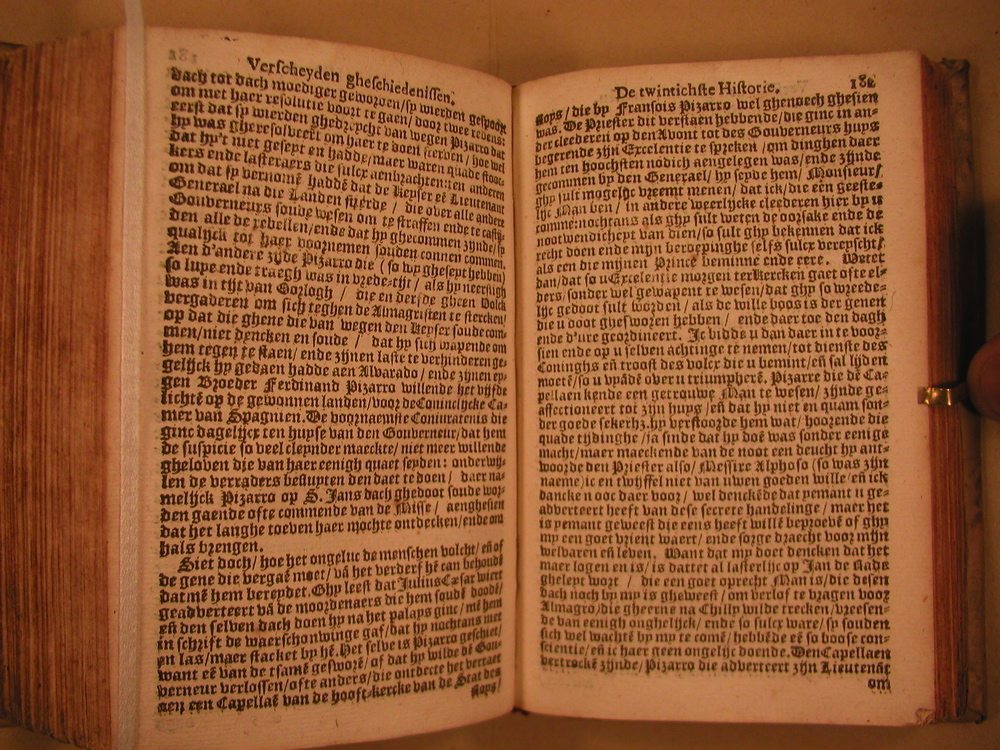 Verscheyden gheschiedenissen.
dach tot dach moediger geworden/sy wierden gespoort
om met haer resolutie voort te gaen/door twee redens:
eerst dat sy wierden ghedrucht van wegen Pizarro dat
hy was gheresolveert om haer te doen sterben/ hoe wel
dat hy't niet gesept en hadde/maer waren quade stoo-
kers ende lasteraers die sulcx aenbrachten: ten anderen
om dat sy vernomē haddē dat de Keyser eē Lieutenant
Generael na die Landen stierde / die over alle andere
Gouverneurs soude wesen om te straffen ende castij-
den alle de rebellen/ende dat hy ghecommen zijnde/sy
qualijck tot haer voornemen souden connen commen.
Aen d'andere zijde Pizarro die (so wy ghesept hebben)
so lupe ende traegh was in vrede-tijt / als hy neerstigh
was in tijt van Oorlogh / die en dede gheen Volck
vergaderen om sich teghen de Almagristen te stercken/
op dat die ghene die van wegen den Keyser soude com-
men/niet dencken en soude / dat hy sich wapende om
hem tegen te staen/ ende zijnen laste te verhinderen ge-
gelijck hy gedaen hadde aen Alvarado / ende zijnen ey-
gen Broeder Ferdinand Pizarro willende het vijfde
lichtē op de gewonnen landen/voor de Conincklycke Ca-
mer van Spagnien. De voornaemste Coniuratenis die
ginc dagelijcx ten huyse van den Gouverneur/dat hem
de suspicie so veel cleynder maeckte/niet meer willende
gheloven die van haer eenigh quaet seyden: onderwij-
len de verraders besluyten den daet te doen/ daer na-
melijck Pizarro op S. Jans dach ghedoot soude wor-
den gaende ofte commende van de Misse / aenghesien
dat het langhe toeven haer mochte ontdecken/ende om
hals brengen.
Siet doch/ hoe het ongeluc de menschen volcht/ eñ of
de gene die vergaē moet/ vā het verderf hē can behoudē
dat mē hem bereydet. Ghy leest dat Julius Cæsar wiert
geadverteert vā de moordenaers die hem soudē doodē/
eñ den selven dach doen hy na het palays ginc/ mē hem
in schrift de waerschonwinge gaf/dat hy nochtans niet
en las/maer stacket by hē. Het selve is Pizarro geschiet/
want eē van de tsamē gesworē/ of dat hy wilde dē Gou-
verneur verlossen/ofte anders/die ontdecte het verraet
aen een Capellaē van de hooft-kercke van de Stat des
Roys/
De twintichste Historie. 182
Roys/ die by Fransois Pizarro wel ghenoech ghesien
was. De Priester dit verstaen hebbende/die ginc in an-
der cleederen op den Avont tot des Gouverneurs huys
begerende zijn Excelentie te spreken /om dinghen daer
hem ten hoochsten nodich aengelegen was/ende zijnde
gecommen by den Generael/ hy seyde hem/ Monsieur/
ghy sult mogelijc vreemt menen/ dat ick/die een geeste-
lijc Man ben/ in andere weerlycke cleederen hier by u
comme: nochtans als ghy sult weten de oorsake ende de
nootwendicheyt van dien/so sult ghy bekennen dat ick
recht doen ende mijn beroepinghe selfs sulcx vereyscht/
als een die mijnen Prince beminne ende eere. Weret
dan/dat so u Excelentie morgen ter Kercken gaet ofte el-
ders/sonder wel gewapent te wesen/dat ghy so wreede-
lijc gedoot sult worden / als de wille boos is der genen
die u doot ghesworen hebben / ende daer toe den dagh
ende d'ure geordineert. Ic bidde u dan daer in te voor-
sien ende op u selven achtinge te nemen/tot dienste des
Coninghs eñ troost des volcx die u bemint/eñ sal lijden
moetē/so u vyādē over u triumpherē. Pizarre die dē Ca-
pellaen kende een getrouwe Man te wesen/ zijnde ge-
affectioneert tot zijn huys /eñ dat hy niet en quam son-
der goede sekerhz.hy verstoorde hem wat/ hoorende die
quade tijdinghe /ja sinde dat hy doē was sonder eenige
macht/maer maeckende van de noot een deucht hy ant-
woorde den Priester also/ Messire Alphoso (so was zijn
naeme) ic en twijffel niet van uwen goeden wille/eñ ick
dancke u ooc daer voor/ wel denckēde dat yemant u ge-
adverteert heeft van dese secrete handelinge/ maer het
is yemant geweest die eens heeft willē beproevē of ghy
my een goet vrient waert/ ende sorge draecht voor mijn
welvaren eñ leven. Want dat my doet dencken dat het
maer logen en is/is dattet al lasterlijc op Jan de Rada
ghelept wort / die een goet oprecht Man is/die desen
dach noch by my is gheweest/om verlof te vragen voor
Almagro/die gheerne na Chilly wilde trecken/vreesen-
de van eenigh onghelijck/ ende so sulcx ware/ sy souden
sich wel wachtē by my te comē/ hebbēde eē so boose con-
scientie/eñ ic haer geen ongelijc doende. Den Capellaen
vertrockē zijnde/Pizarro die adverteert zijn Lieutenāt
om